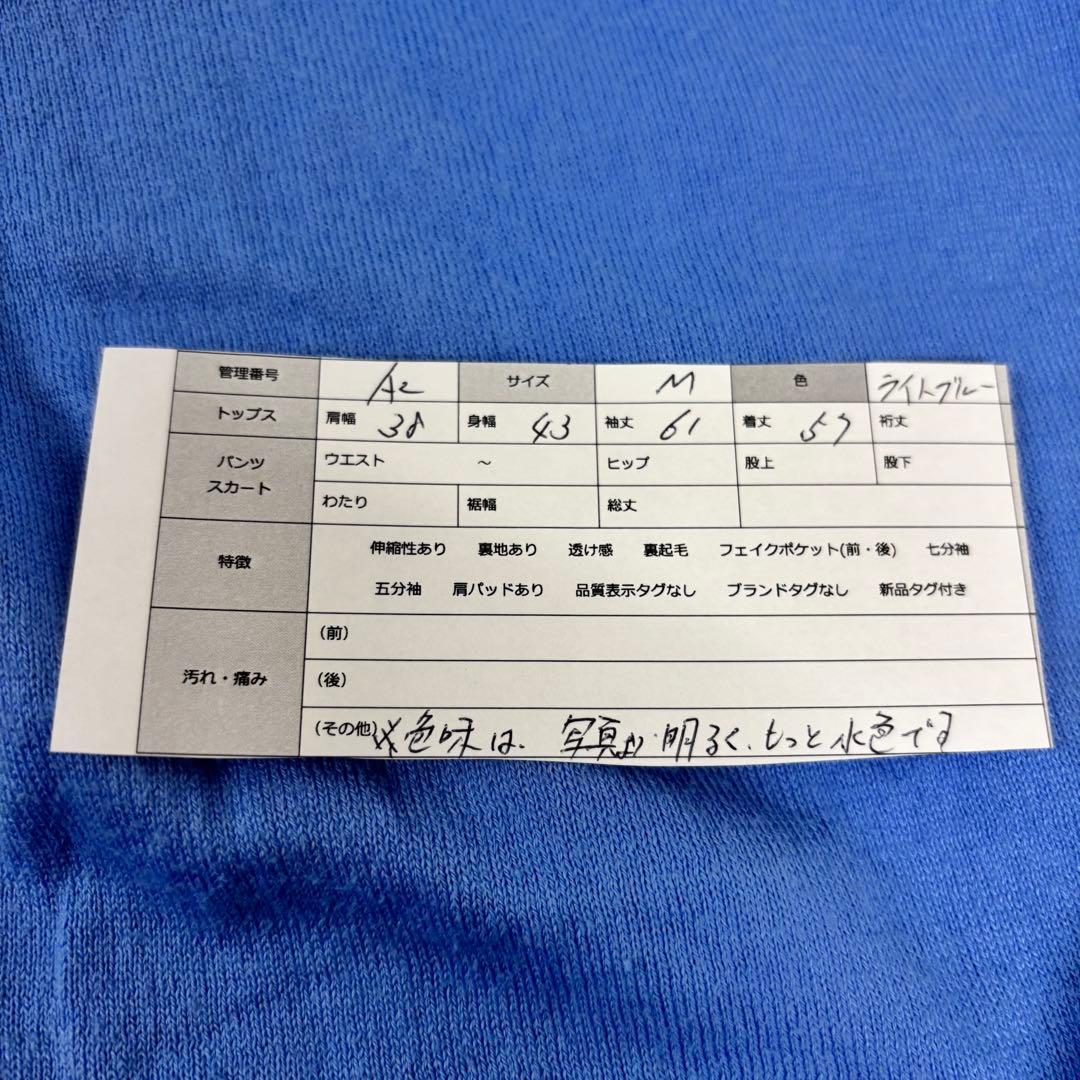 管理番号 A2 サイズ M 色 ライトブルー
トップス 肩幅 38 身幅 43 袖丈 61 着丈 57 裄丈
パンツ スカート ウエスト ～ ヒップ 股上 股下
わたり 裾幅 総丈
特徴 伸縮性あり 裏地あり 透け感 裏起毛 フェイクポケット(前・後) 七分袖
五分袖 肩パッドあり 品質表示タグなし ブランドタグなし 新品タグ付き
汚れ・痛み (前)
(後)
(その他) ※色味は、写真より明るく、もっと水色です